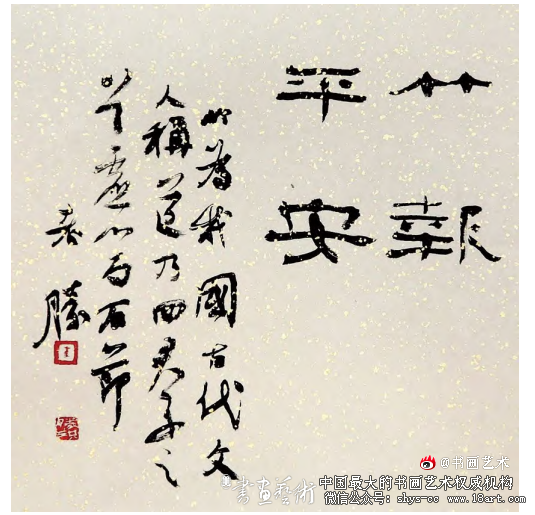 竹報
平安
竹為我國古代文
人稱道乃四君子之
以其虛心而有節
勝
@书画艺术
書畫藝術
中国最大的书画艺术权威机构
微信公众号: shys-cc www.18art.com